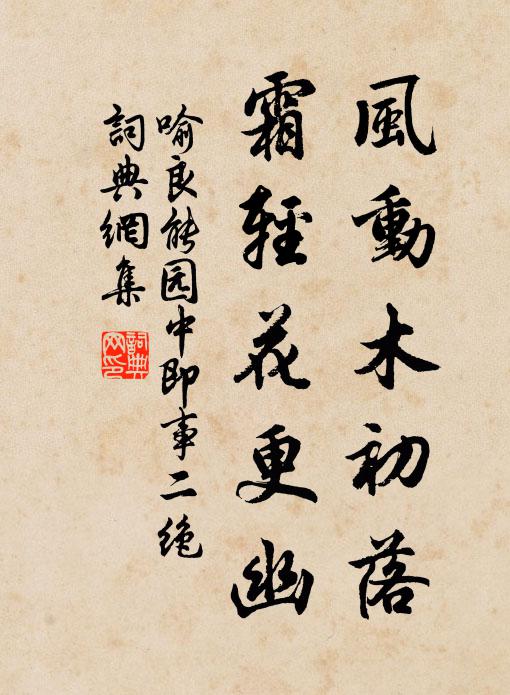 風動木初落
霜輕花更幽
喻良能园中即事二绝
詞典網集
詞典网印